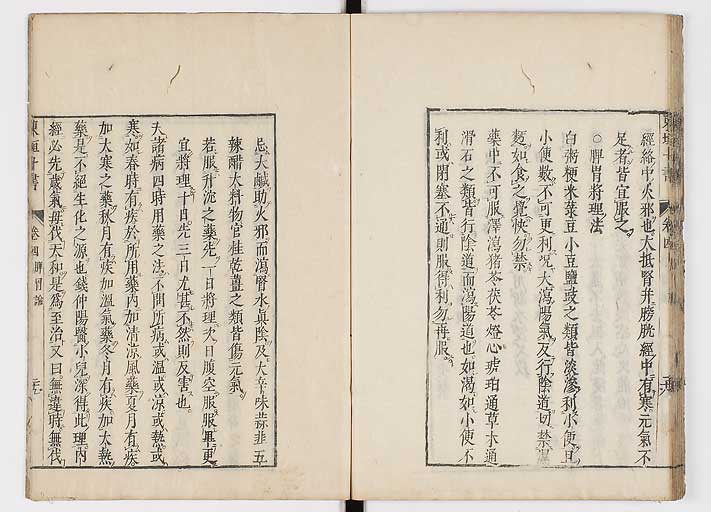 經絡中火邪也大抵腎并膀胱經中有寒元氣不
足者皆宜服之
○脾胃將理法
白粥粳米菉豆小豆鹽豉之類皆淡滲利小便且
小便數不可更利况大瀉陽氣反行陰道切禁濕
麪如食之覺快勿禁
藥中不可服澤瀉猪苓茯苓燈心琥珀通草木通
滑石之類皆行陰道而瀉陽道也如渴如小便不
利或閉塞不通則服得利勿再服
忌大鹹助火邪而瀉腎水眞陰及大辛味蒜韭五
辣醋大料物官桂乾薑之類皆傷元氣
若服升沉之藥先一日將理次日腹空服服畢更
宜將理十日先三日尤甚不然則反害也
夫諸病四時用藥之法不問所病或温或凉或熱或
寒如春時有疾於所用藥内加清凉風藥夏月有疾
加大寒之藥秋月有疾加温氣藥冬月有疾加大熱
藥是不絕生化之源也錢仲陽醫小兒深得此理内
經必先歲氣毋伐天和是爲至治又曰無違時無伐
東垣十書
卷四脾胃論